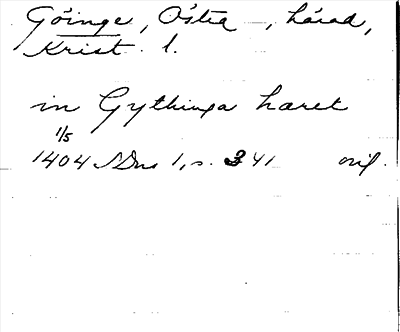 Göinge, Östra, härad,
Krist. l.
in Gythinga hæret
1/5
1404 SDns 1, s. 341 orig.